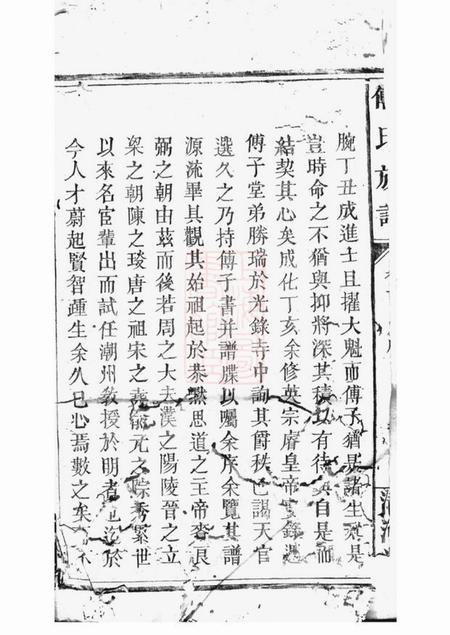 傅氏族譜
腕丁丑成進士且擢大魁而傅子猶是諸生意是
豈時命之不猶與抑將深其積以有待與自是而
結契其心矣成化丁亥余修英宗睿皇帝實錄遇
傅子堂弟勝瑞於光錄寺中詢其爵秩已謁天官
選久之乃持傅子書并譜牒以囑余序余覽其譜
源流畢具觀其始祖起於恭默思道之王帝賚良
弼之朝由茲而後若周之大夫漢之陽陵晉之立
梁之朝陳之琰唐之祖宋之堯俞元之 累世
以來名宦輩出而試任潮州教授於明者 迄於
今人才蔚起賢智踵生余久已心焉數之矣